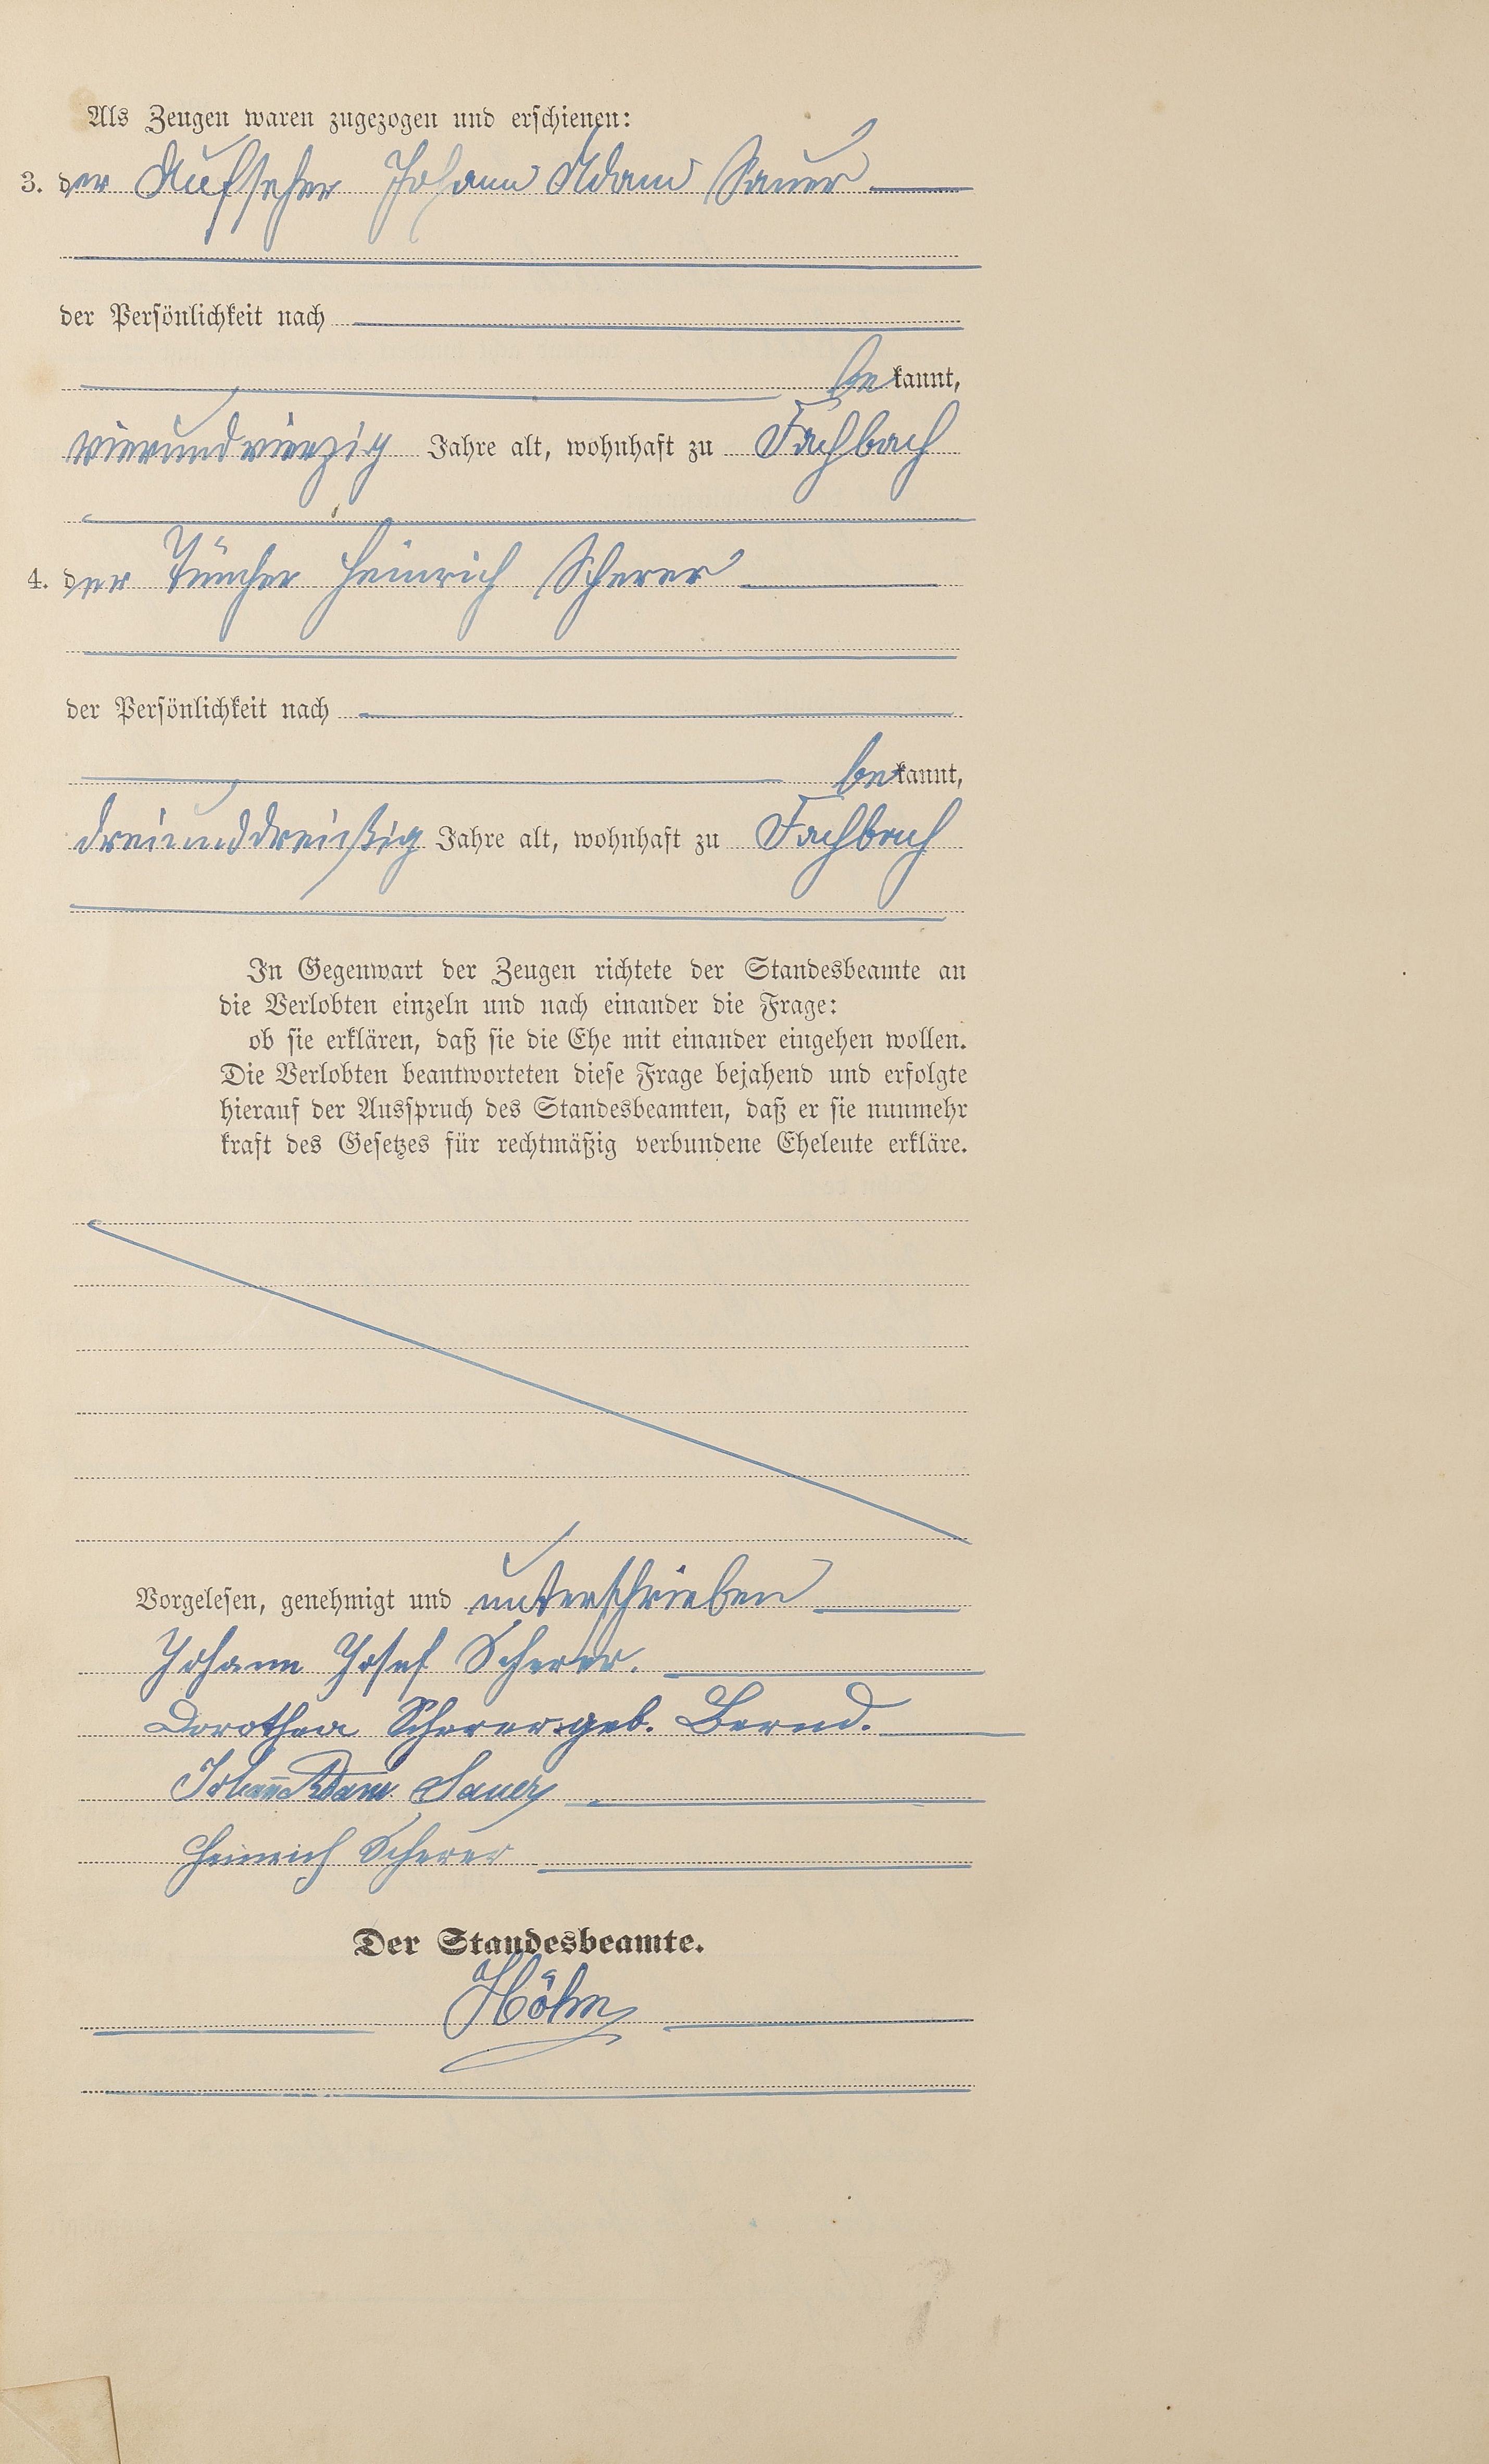 Als Zeugen waren zugezogen und erschienen:
3. der Aufseher Johann Adam Sauer
der Persönlichkeit nach
bekannt,
vierundvierzig Jahre alt, wohnhaft zu Fachbach
4. der Tüncher Heinrich Scherer
der Persönlichkeit nach
bekannt,
dreiunddreißig Jahre alt, wohnhaft zu Fachbach
In Gegenwart der Zeugen richtete der Standesbeamte an
die Verlobten einzeln und nach einander die Frage:
ob sie erklären, daß sie die Ehe mit einander eingehen wollen.
Die Verlobten beantworteten diese Frage bejahend und erfolgte
hierauf der Ausspruch des Standesbeamten, daß er sie nunmehr
kraft des Gesetzes für rechtmäßig verbundene Eheleute erkläre.
Vorgelesen, genehmigt und unterschrieben
Johann Josef Scherer.
Dorothea Scherer geb. Bernd.
Johann Adam Sauer
Heinrich Scherer
Der Standesbeamte.
Höhn